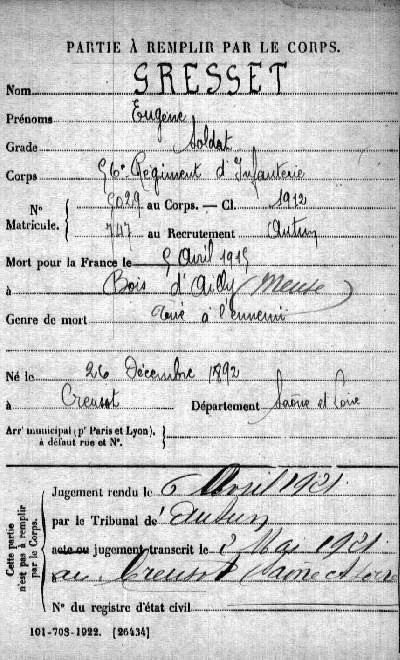 PARTIE À REMPLIR PAR LE CORPS.
Nom GRESSET
Prénoms Eugène
Grade Soldat
Corps 56e Régiment d'Infanterie
N° Matricule. 5029 au Corps. — Cl. 1912
747 au Recrutement Autun
Mort pour la France le 5 Avril 1915
à Bois d'Ailly (Meuse)
Genre de mort Tué à l'ennemi
Né le 26 Décembre 1892
à Creusot Département Saône et Loire
Arrt municipal (pr Paris et Lyon), à défaut rue et N°.
Cette partie n'est pas à remplir par le Corps.
Jugement rendu le 6 Avril 1921
par le Tribunal de Autun
acte ou jugement transcrit le 2 Mai 1921
au Creusot Saône et Loire
N° du registre d'état civil
101-708-1922. [26434]